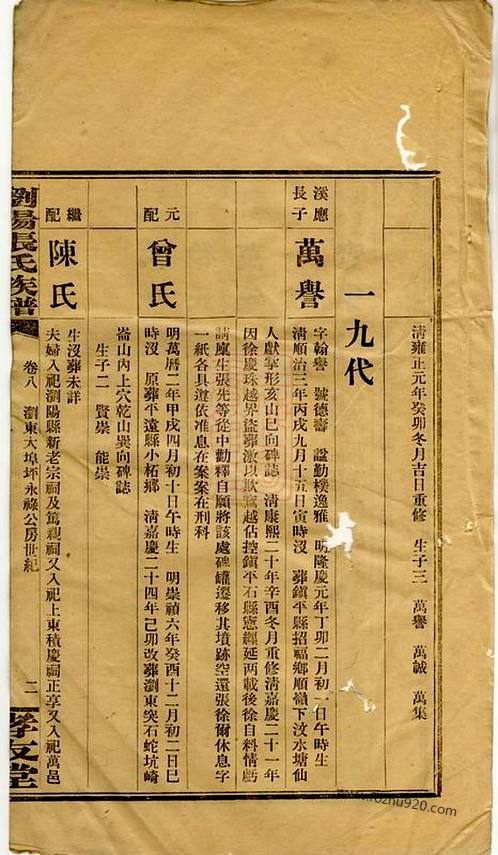 清雍正元年癸卯冬月吉日重修　生子三　萬譽　萬誠　萬集
一九代
溪應長子
萬譽
字翰譽　號德壽　諡勤樸逸雅　明隆慶元年丁卯二月初一日午時生
清順治三年丙戌九月十五日寅時沒　葬鎮平縣招福鄉順嶺下汶水塘仙
人獻掌形亥山巳向碑誌　清康熙二十年辛酉冬月重修清嘉慶二十一年
因徐慶珠越界盜葬激以欺寫越佔控鎮平石縣憲纏延兩載後徐自料情虧
請廩生張先等從中勸釋自願將該處碑罐遷移其墳跡空還張徐爾休息字
一紙各具遵依准息在案案在刑科
元配
曾氏
明萬曆二年甲戌四月初十日午時生　明崇禎六年癸酉十二月初二日巳
時沒　原葬平遠縣小柘鄉　清嘉慶二十四年己卯改葬瀏東突石蛇坑崎
崙山內上穴乾山巽向碑誌
生子二　賢崇　能崇
繼配
陳氏
生沒葬未詳
夫婦入祀瀏陽縣新老宗祠及篤親祠又入祀上東積慶祠正享又入祀萬邑
瀏陽張氏族譜
卷八　瀏東大埠坪永祿公房世紀
二
孝友堂